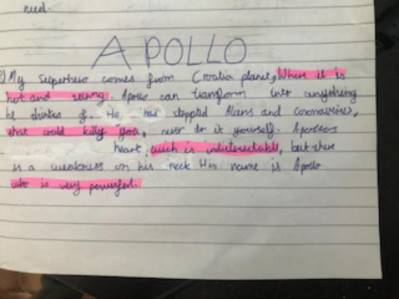 need.
APOLLO
My Superhero comes from Croatia planet, Where it is
hot and rainy. Apollo can transform into anything
he thinks of. He has stopped Aliens and coronavirus,
that could kill you, never do it yourself. Apollos
heart, wich is indestructable, but there
is a weakness on his neck His name is Apollo
who is very powerful.